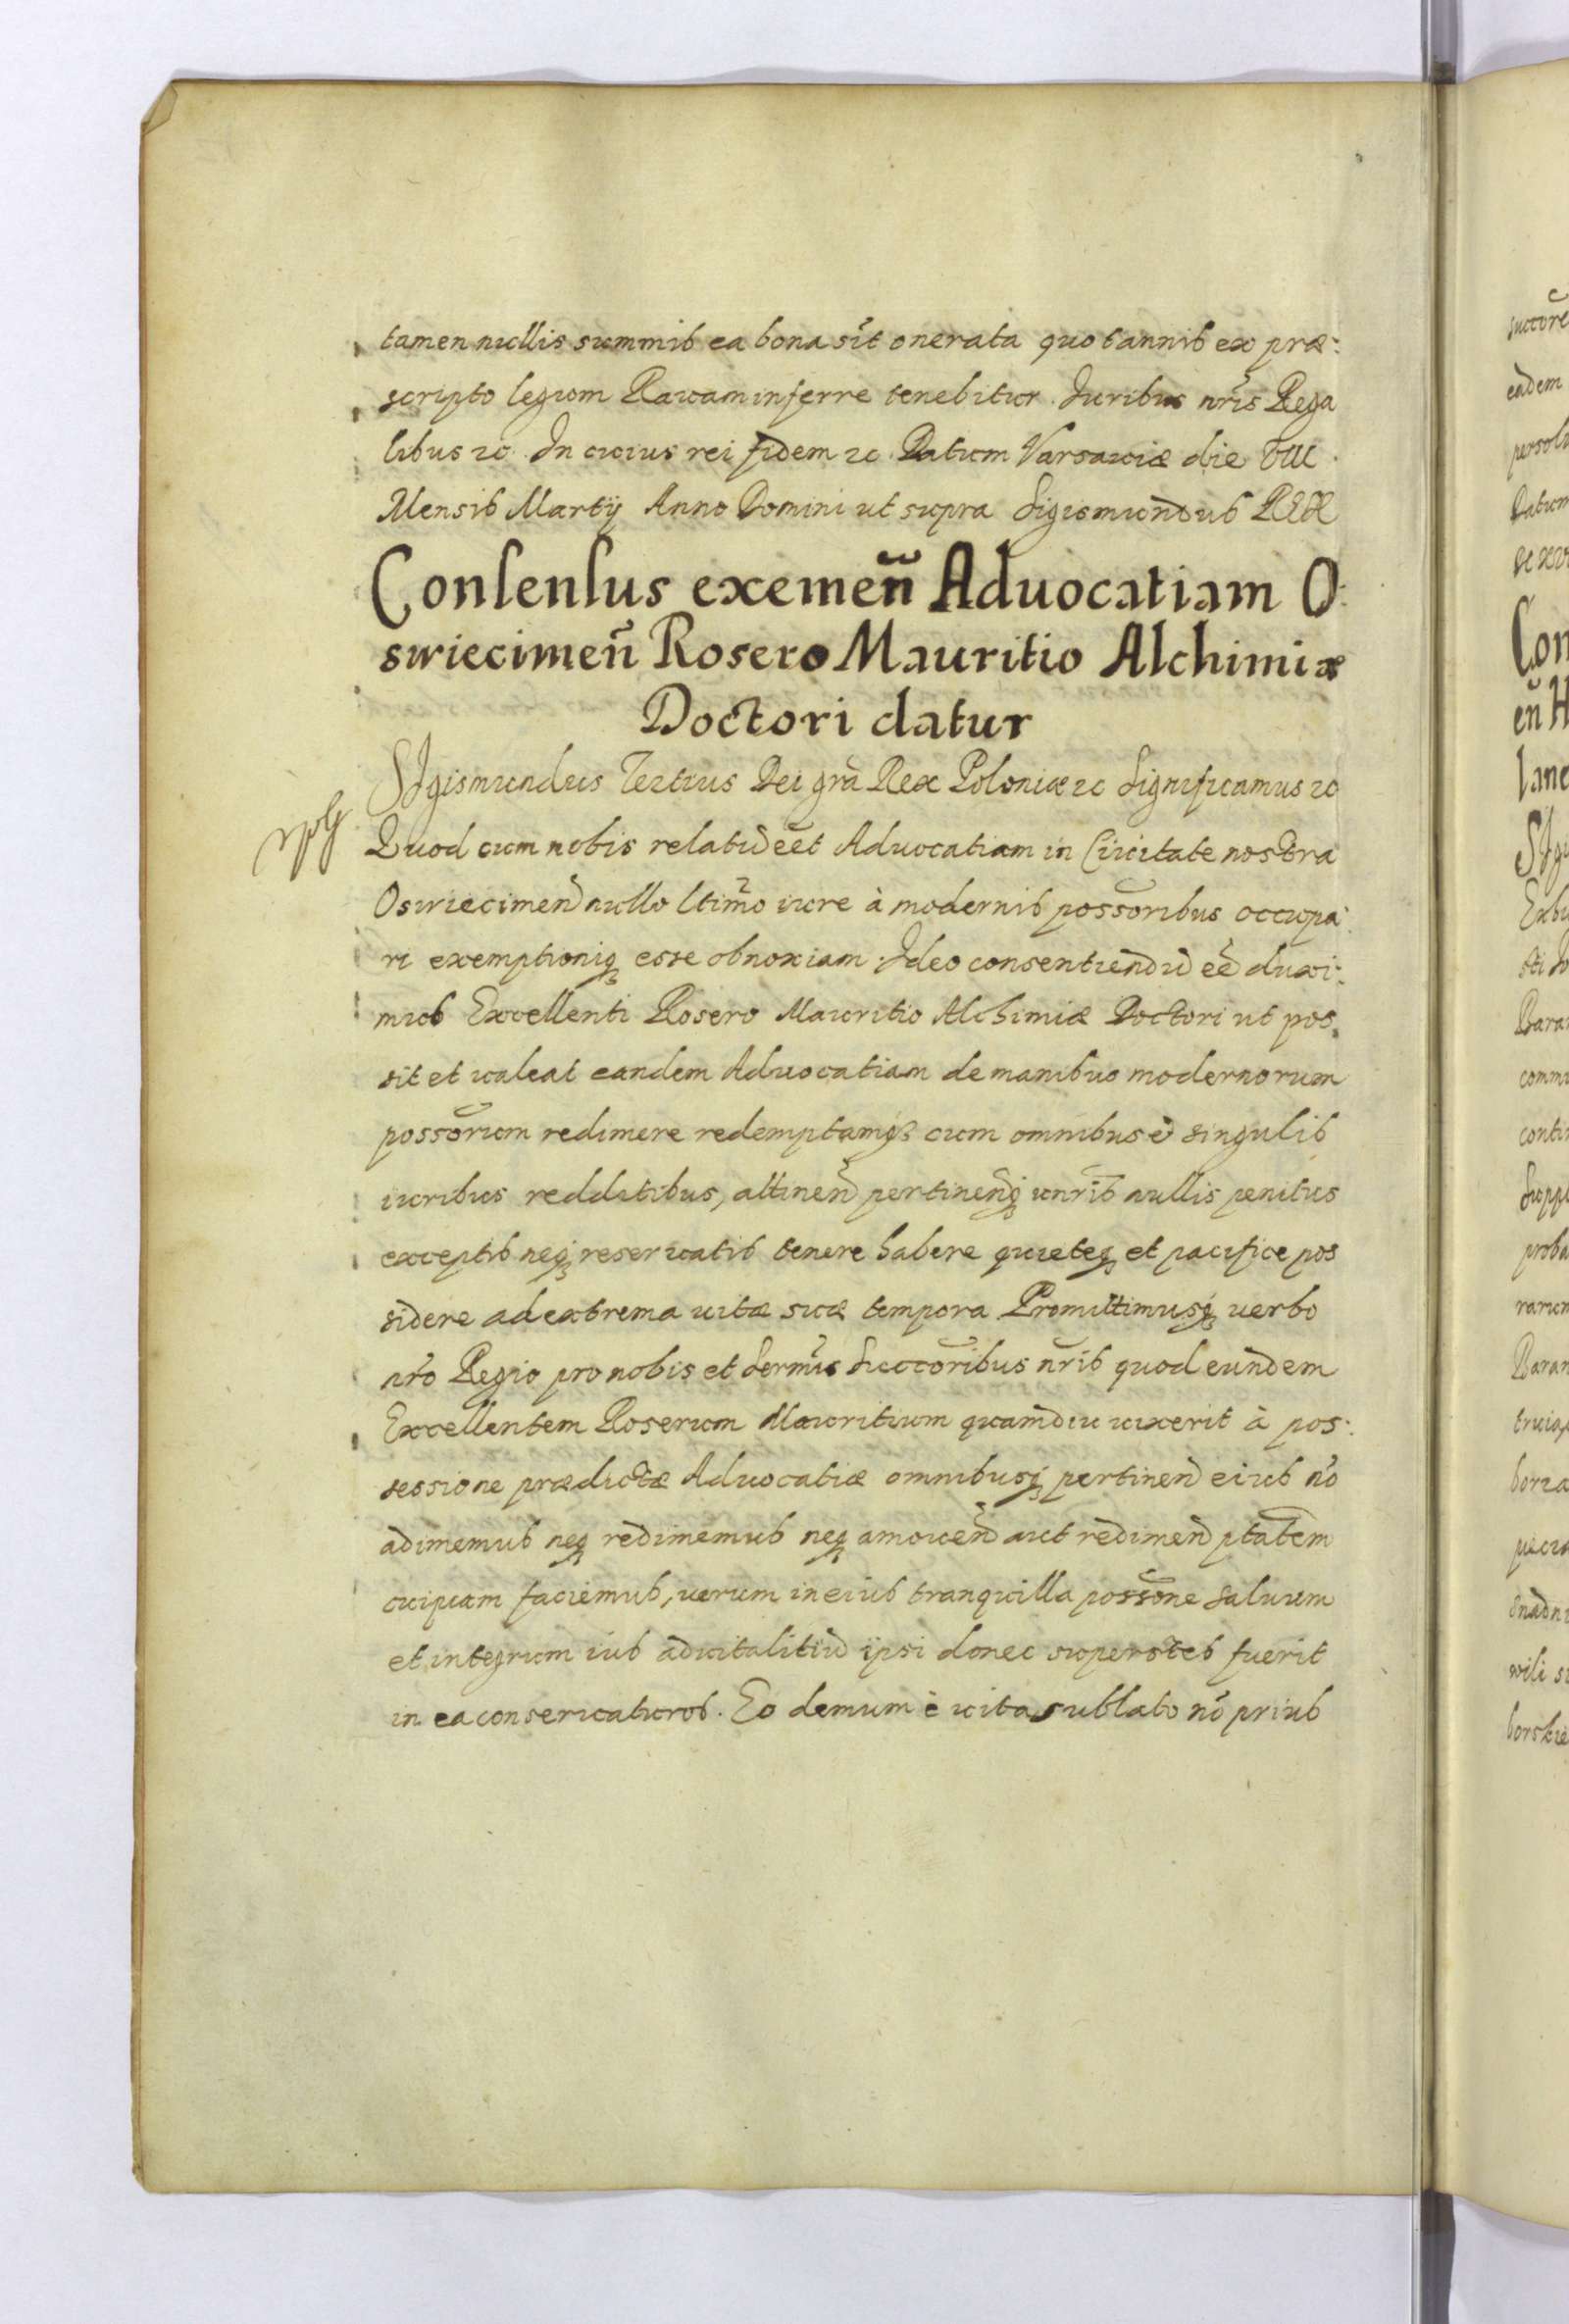 tamen nullis summis ea bona sīt onerata quotannis ex præ:
scripto legum Rauam inferre tenebitur. Iuribus nr̄is Rega
libus ꝛc. In cuius rei fidem ꝛc. Datum Varsauiæ die VIII.
Mensis Martij Anno Domini ut supra Sigismundus REX
Consensus exemen̄ Aduocatiam O:
swiecimen̄ Rosero Mauritio Alchimiæ
Doctori datur
SIgismundus Tertius Dei gr̄a Rex Poloniæ ꝛc Significamus ꝛc
Quod cum nobis relatū eēt Aduocatiam in Ciuitate nostra
Oswiecimen̄ nullo l̄timo iure à modernis poss̄oribus occupa:
ri exemptioniq̨ esse obnoxiam. Ideo consentiendū eē duxi:
mus Excellenti Rosero Mauritio Alchimiæ Doctori ut pos:
sit et ualeat eandem Aduocatiam de manibus modernorum
poss̄orum redimere redemptamq̨ cum omnibus è singulis
iuribus redditibus, attinen̄ pertinen̄q̨ unr̄is nullis penitus
exceptis neq̨ reseruatis tenere habere quieteq̨ et pacifice pos
sidere ad extrema uitæ suæ tempora Promittimusq̨ uerbo
nr̄o Regio pro nobis et Serm̄is Succ̄oribus nr̄is quod eundem
Excellentem Roserum Mauritium quamdiu uixerit à pos:
sessione prædictæ Aduocatiæ omnibusq̨ pertinen̄ eius nō
adimemus neq̨ redimemus neq̨ amouen̄ aut redimen̄ pt̄atem
cuipiam faciemus, uerum in eius tranquilla poss̄one saluum
et integrum ius aduitalitiū ipsi donec superstes fuerit
in ea conseruaturos. Eo demum è uita sublato nō prius